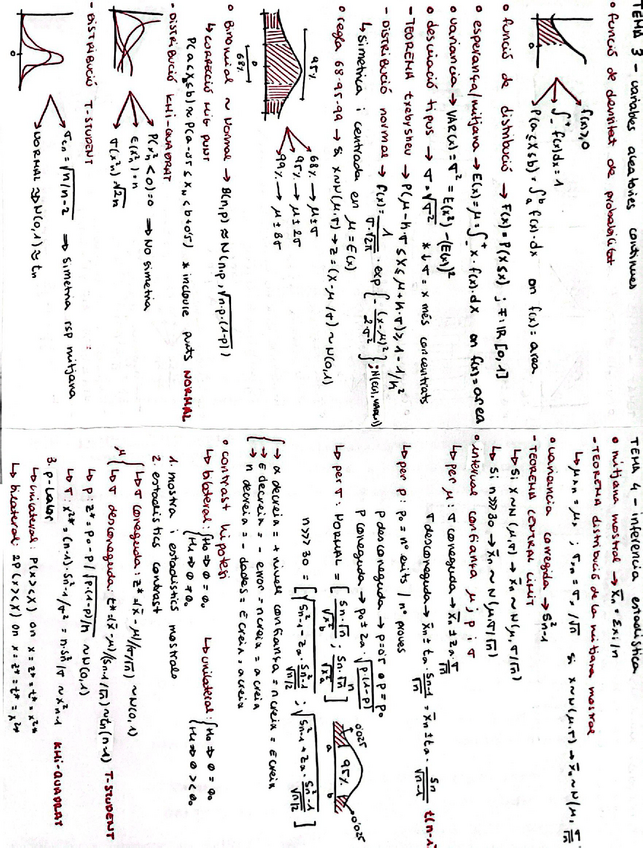 TEMA 3 - variables aleatories continues
• funció de densitat de probabilitat
f(x) ≥ 0
∫ f(x) dx = 1
P(a ≤ X ≤ b) = ∫ₐᵇ f(x)·dx on f(x) = area
• funció de distribució → F(x) = P(X ≤ x) ; F: ℝ [0,1]
• esperança/mitjana → E(x) = μ = ∫ x·f(x)·dx on f(x) = area
• variancia → VAR(x) = σ² = E(x²) - (E(x))²
• desviació tipus → σ = √σ² * ↓σ = x més concentrats
- TEOREMA txebyshev → P(μ - k·σ ≤ X ≤ μ + k·σ) ≥ 1 - 1/k²
- DISTRIBUCIÓ normal → f(x) = 1/(σ·√2π) · exp{-(x-μ)²/2σ²} ;
↳ simetrica i centrada en μ = E(x)
• regla 68-95-99 → Si X~N(μ,σ) → z = (x-μ/σ) ~ N(0,1)
95%
68%
0
68% → μ ± σ
95% → μ ± 2σ
99% → μ ± 3σ
• Binomial ~ Normal → B(n,p) ≈ N(np, √n·p·(1-p))
↳ correcció mig punt
P(a ≤ X ≤ b) ≈ P(a - 0'5 ≤ X ≤ b + 0'5) * incloure punts NORMAL
- DISTRIBUCIÓ KHI-QUADRAT
0
P(x²n < 0) = 0 → No simetria
E(x²n) = n
σ(x²n) √2n
- DISTRIBUCIÓ T-STUDENT
0
σtn = √n/n-2 ⇒ simetria rsp mitjana
NORMAL → N(0,1) ≈ tn
TEMA 4 - inferencia estadistica
• mitjana mostral → x̄n = Σxi/n
- TEOREMA distribució de la mitjana mostral
↳ μx̄n = μx ; σx̄n = σx/√n si X~N(μ,σ) → x̄n ~ N(μ, σ/√n)
• variancia corregida → S²n-1
- TEOREMA CENTRAL LIMIT
↳ Si X~N(μ,σ) → x̄n ~ N(μ, σ/√n)
↳ Si n>>>30 → x̄n ~ N(μ, σ/√n)
• interval confiança μ, p i σ
↳ per μ: σ coneguda → x̄n ± zα · σ/√n
σ desconeguda → x̄n ± tα · Sn-1/√n = x̄n ± tα · Sn/√n-1 t(n-1)
↳ per p: p₀ = nº exits / nº proves
p desconeguda → p = 0'5 o p = p₀
p coneguda → p₀ ± zα · √p(1-p)/n
↳ per σ: NORMAL = [Sn·√n/√x²b ; Sn·√n/√x²a]
0'025
95%
0'025
a
b
n>>>30 = [√S²n-1 - zα · S²n-1/√n/2 ; √S²n-1 + zα · S²n-1/√n/2]
→ α decreix = + nivell confiança = n creix = E creix
→ E decreix = - error = n creix = α creix
→ n decreix = - dades = E creix = α creix
• contrast hipotesi
↳ bilateral: {H₀ ⇒ θ = θ₀ ↳ unilateral: {H₀ ⇒ θ = θ₀
{H₁ ⇒ θ ≠ θ₀ {H₁ ⇒ θ > < θ₀
1. mostra i estadistics mostrals
2. estadistics contrast
μ { ↳ σ coneguda: z* = (x̄ - μ)/(σ/√n) ~ N(0,1)
↳ σ desconeguda: t* = (x̄ - μ)/(Sn-1/√n) ~ t(n-1) T-STUDENT
↳ p: z* = p₀ - p/√p·(1-p)/n ~ N(0,1)
↳ σ: x²* = (n-1)·S²n-1/σ² = n·S²n/σ² ~ x²n-1 KHI-QUADRAT
3. p-valor
↳ unilateral: P(X > x) on x = z* = t* = x²*
↳ bilateral: 2P(X > x) on x = z* = t* = x²*